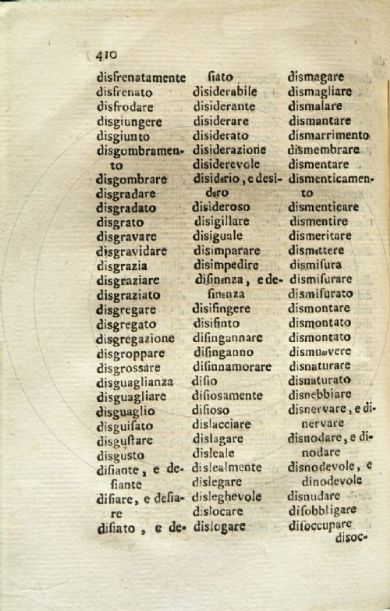 410
disfrenatamente
disfrenato
disfrodare
disgiungere
disgiunto
disgombramen-
to
disgombrare
disgradare
disgradato
disgrato
disgravare
disgravidare
disgrazia
disgraziare
disgraziato
disgregare
disgregato
disgregazione
disgroppare
disgrossare
disguaglianza
disguagliare
disguaglio
disguiſato
disguſtare
disgusto
diſiante, e de-
ſiante
diſiare, e deſia-
re
diſiato, e de-
ſiato
disiderabile
disiderante
disiderare
disiderato
disiderazione
disiderevole
disiderio, e desi-
dero
disideroso
disigillare
disiguale
disimparare
disimpedire
diſinenza, e de-
ſinenza
disifingere
disifinto
diſingannare
diſinganno
diſinnamorare
diſio
diſiosamente
diſioso
dislacciare
dislagare
disleale
dislealmente
dislegare
disleghevole
dislocare
dislogare
dismagare
dismagliare
dismalare
dismantare
dismarrimento
dismembrare
dismentare
dismenticamen-
to
dismenticare
dismentire
dismeritare
dismettere
dismiſura
dismiſurare
dismiſurato
dismontare
dismontato
dismontato
dismuovere
disnaturare
disnaturato
disnebbiare
disnervare, e di-
nervare
disnodare, e di-
nodare
disnodevole, e
dinodevole
disnudare
diſobbligare
diſoccupare
disoc-